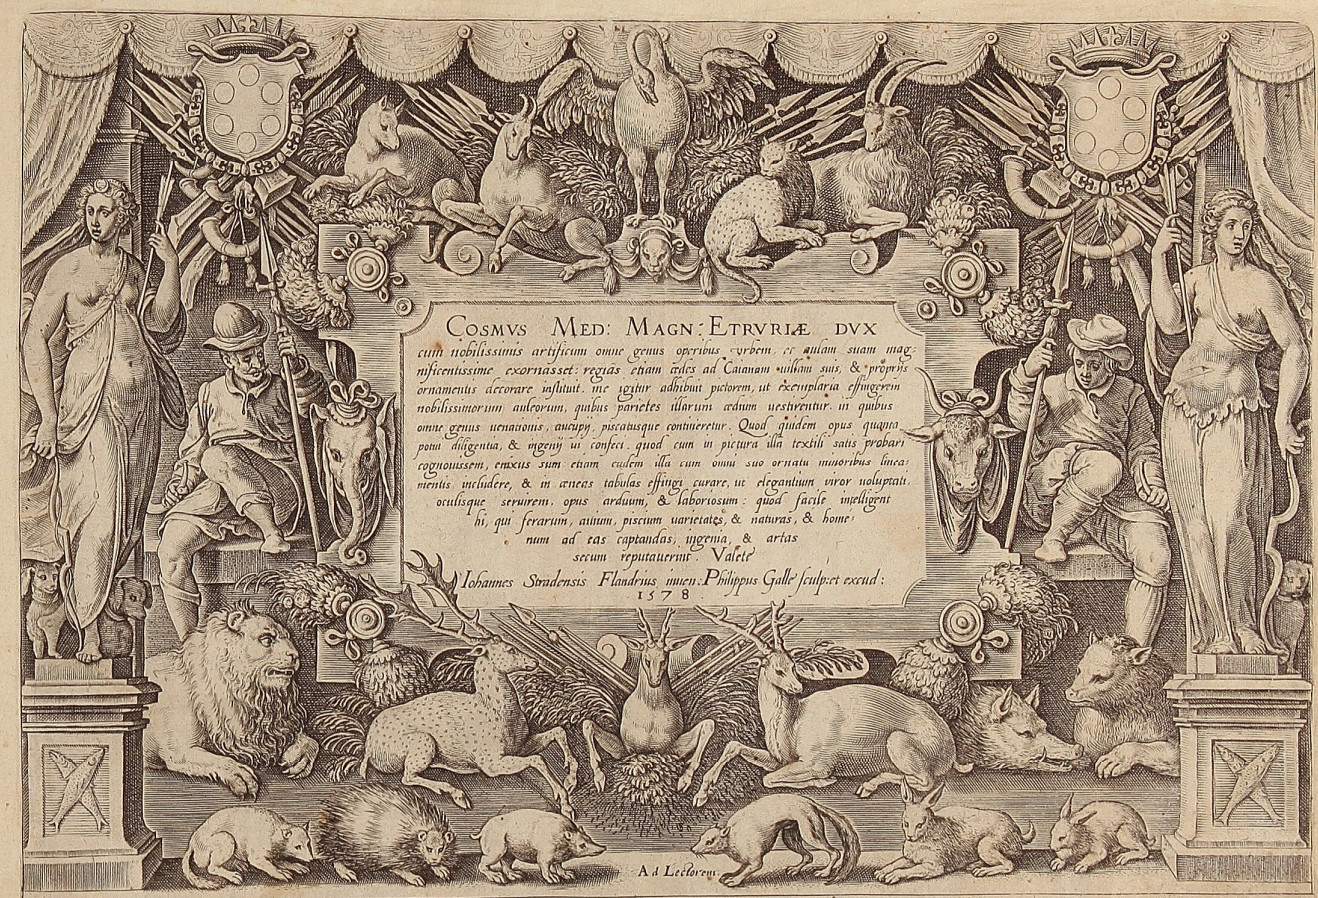 COSMVS MED: MAGN: ETRVRIÆ DVX
cum nobilissimis artificum omne genus operibus urbem, et aulam suam mag-
nificentissime exornasset: regias etiam ædes ad Caianam uillam suis, & proprijs
ornamentis decorare instituit. me igitur adhibuit pictorem, ut exemplaria effingerem
nobilissimorum auleorum, quibus parietes illarum ædium uestirentur. in quibus
omne genus uenationis, aucupij, piscatusque contineretur. Quod quidem opus quanta
potui diligentia, & ingenij ui confeci. quod cum in pictura illa textili satis probari
cognouissem, enixus sum etiam eadem illa cum omni suo ornatu minoribus linea:
mentis includere, & in æneas tabulas effingi curare, ut elegantium viror uoluptati,
oculisque seruirem. opus arduum, & laboriosum: quod facile intelligent
hi, qui ferarum, auium, piscum uarietates, & naturas, & homi:
num ad eas captandas, ingenia, & artas
secum reputauerint. Valete
Iohannes Stradensis Flandrius inuen: Philippus Galle sculp: et excud:
1578.
Ad Lectorem.